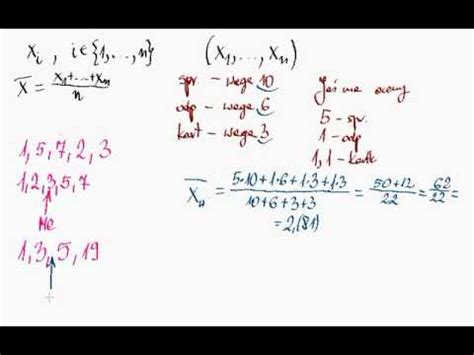 x_i , i∈{1,...,n}   (x_1,...,x_n)
x̄ = (x_1+...+x_n)/n
spr. – wagę 10
odp – wagę 6
kart – wagę 3
Jaś ma oceny
5 – spr.
1 – odp
1,1 – kartk
1, 5, 7, 2, 3
1, 2, 3, 5, 7
Me
1, 3, 5, 19
x̄_w = (5·10+1·6+1·3+1·3)/(10+6+3+3) = (50+12)/22 = 62/22 =
= 2,(81)